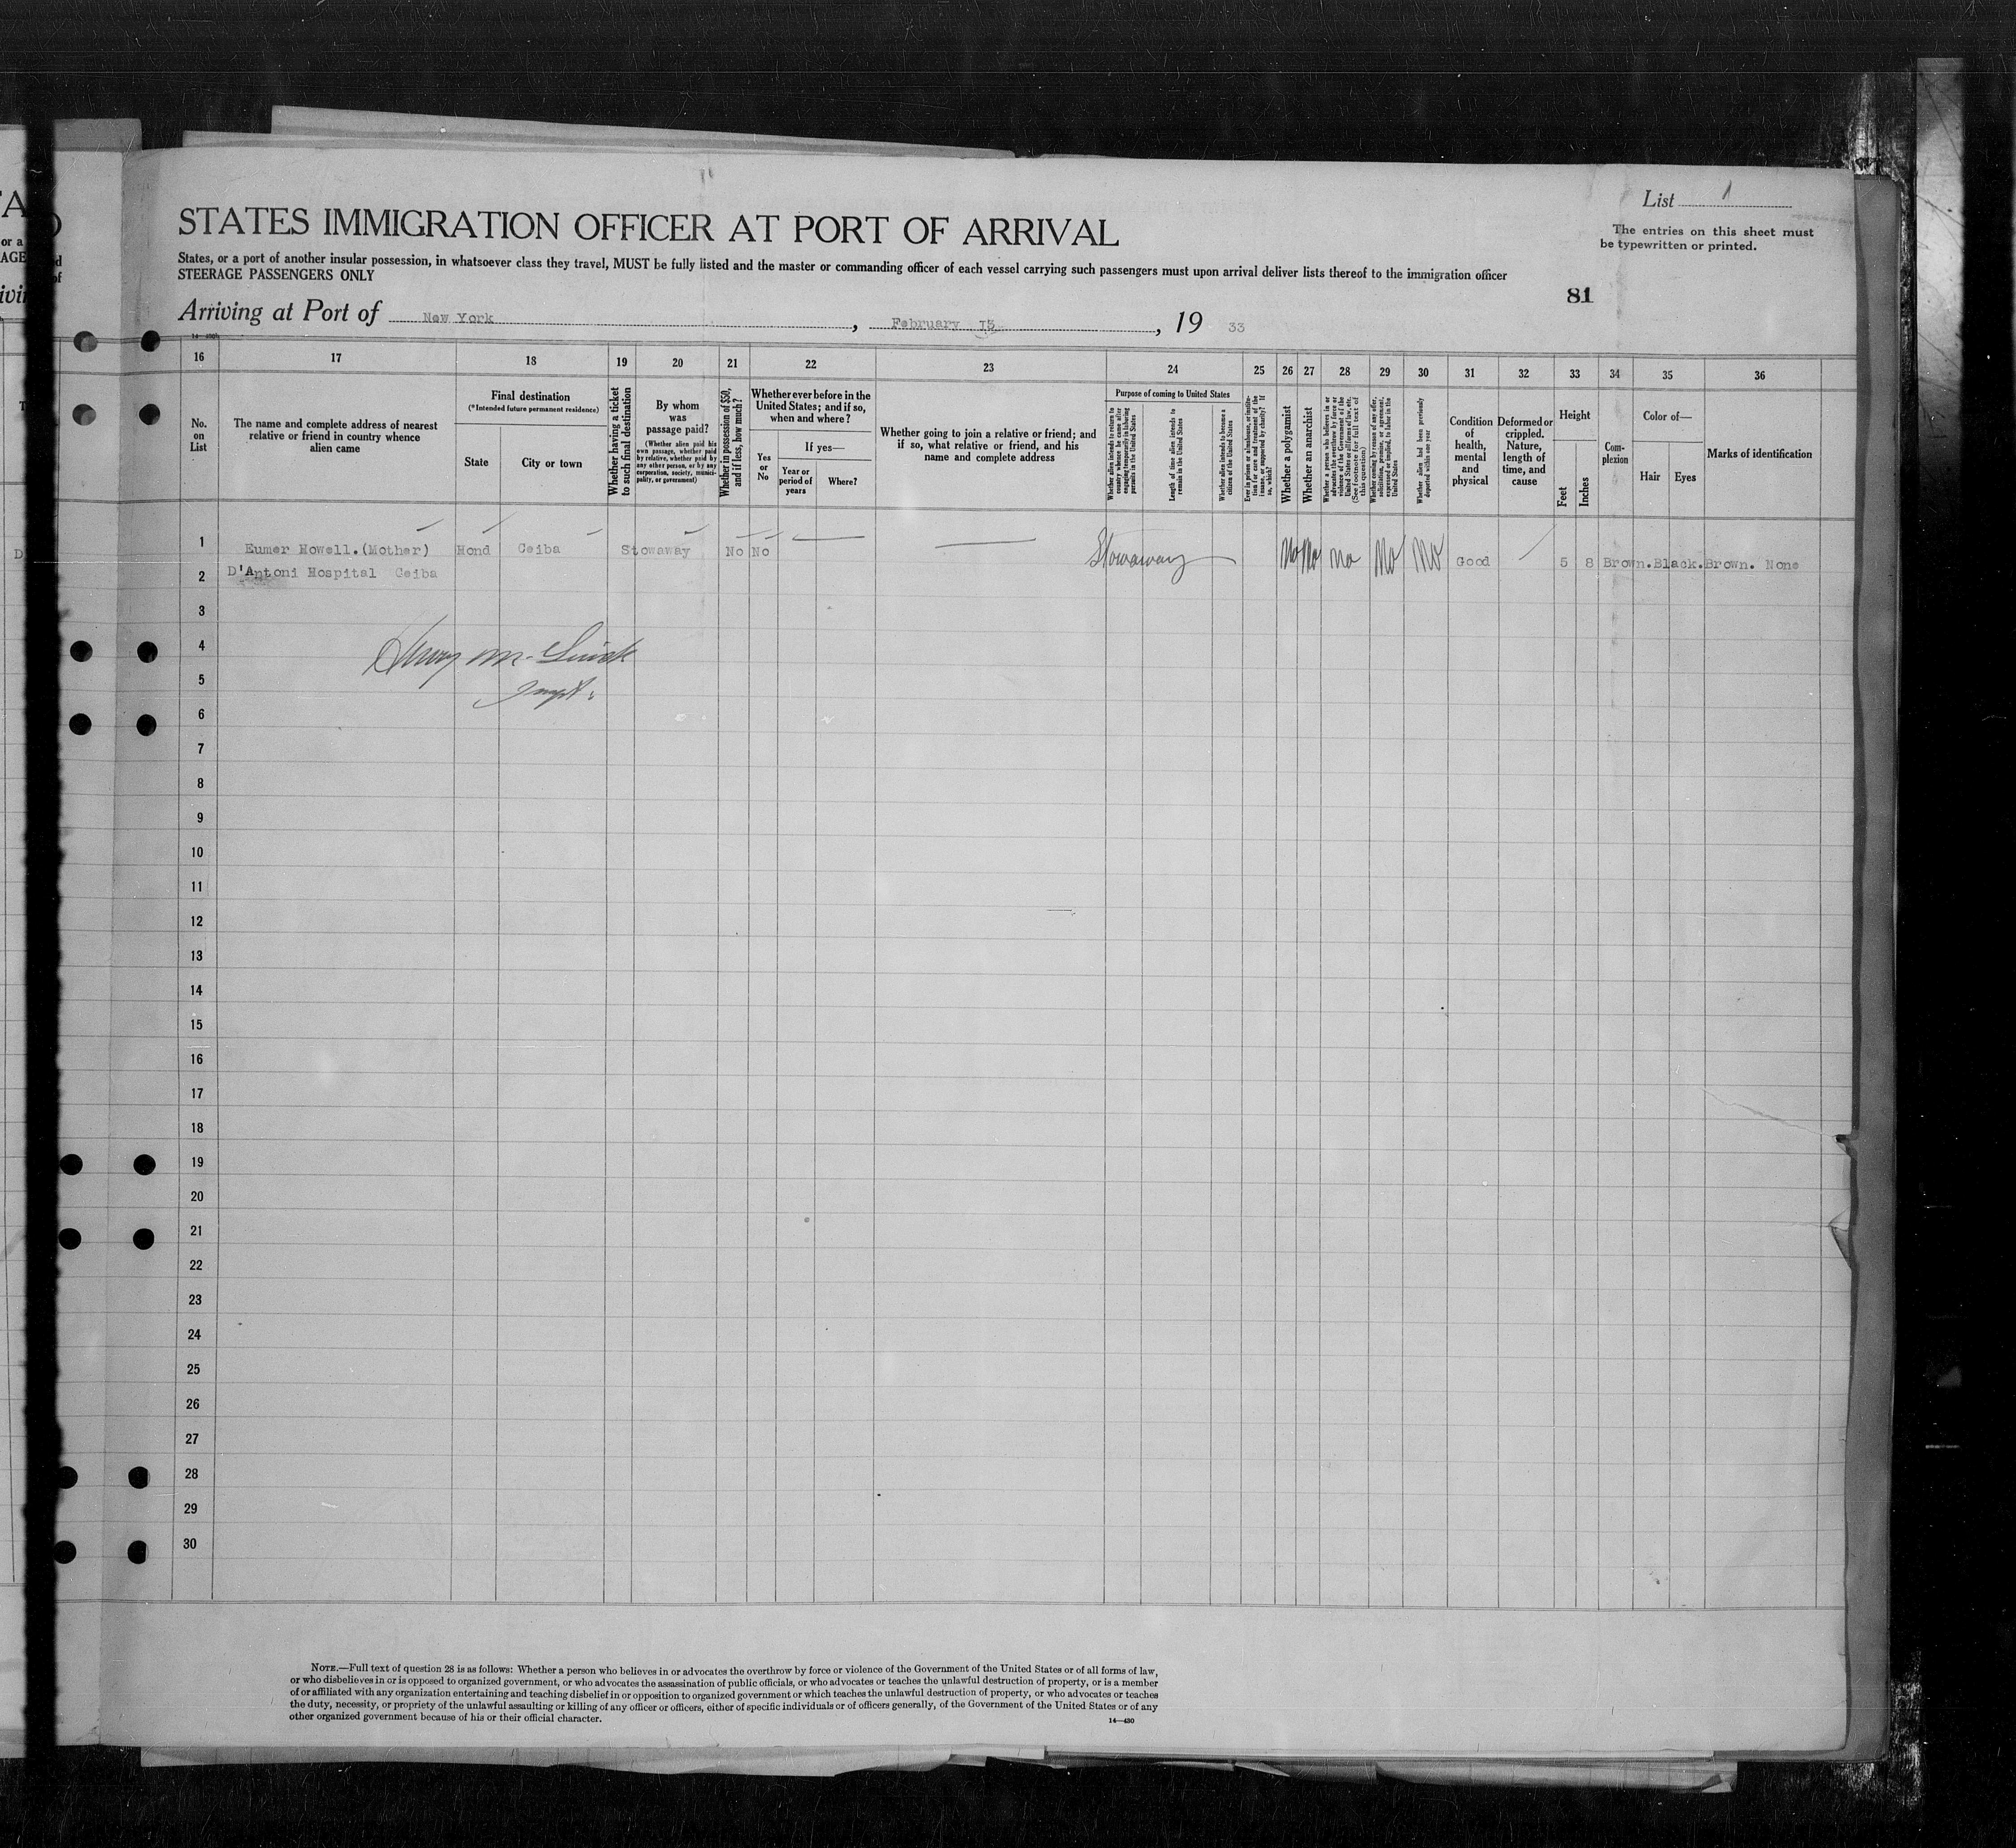 List 1
The entries on this sheet must
be typewritten or printed.
STATES IMMIGRATION OFFICER AT PORT OF ARRIVAL
States, or a port of another insular possession, in whatsoever class they travel, MUST be fully listed and the master or commanding officer of each vessel carrying such passengers must upon arrival deliver lists thereof to the immigration officer
STEERAGE PASSENGERS ONLY
81
Arriving at Port of New York, February 13, 1933
16 17 18 19 20 21 22 23 24 25 26 27 28 29 30 31 32 33 34 35 36
No. on List
The name and complete address of nearest
relative or friend in country whence
alien came
Final destination
(*Intended future permanent residence)
State
City or town
Whether having a ticket
to such final destination
By whom
was
passage paid?
(Whether alien paid his
own passage, whether paid
by relative, whether paid by
any other person, or by any
corporation, society, munici-
pality, or government)
Whether in possession of $50,
and if less, how much?
Whether ever before in the
United States; and if so,
when and where?
Yes
or
No
If yes—
Year or
period of
years
Where?
Whether going to join a relative or friend; and
if so, what relative or friend, and his
name and complete address
Purpose of coming to United States
Whether alien intends to return to
country whence he came after
engaging temporarily in laboring
pursuits in the United States
Length of time alien intends to
remain in the United States
Whether alien intends to become a
citizen of the United States
Ever in prison or almshouse, or institu-
tion for care and treatment of the
insane, or supported by charity? If
so, which?
Whether a polygamist
Whether an anarchist
Whether a person who believes in or
advocates the overthrow by force or
violence of the Government of the
United States or all forms of law, etc.
(See footnote for full text of
this question)
Whether coming by reason of any offer,
solicitation, promise, or agreement,
expressed or implied, to labor in the
United States
Whether alien had been previously
deported within one year
Condition
of
health,
mental
and
physical
Deformed or
crippled.
Nature,
length of
time, and
cause
Height
Feet
Inches
Com-
plexion
Color of—
Hair
Eyes
Marks of identification
1 Eumer Howell.(Mother) Hond Ceiba Stowaway No No Stowaway No No No No No Good 5 8 Brown. Black. Brown. None
2 D'Antoni Hospital Ceiba
3
4
5 Inspt.
6
7
8
9
10
11
12
13
14
15
16
17
18
19
20
21
22
23
24
25
26
27
28
29
30
NOTE.—Full text of question 28 is as follows: Whether a person who believes in or advocates the overthrow by force or violence of the Government of the United States or of all forms of law,
or who disbelieves in or is opposed to organized government, or who advocates the assassination of public officials, or who advocates or teaches the unlawful destruction of property, or is a member
of or affiliated with any organization entertaining and teaching disbelief in or opposition to organized government or which teaches the unlawful destruction of property, or who advocates or teaches
the duty, necessity, or propriety of the unlawful assaulting or killing of any officer or officers, either of specific individuals or of officers generally, of the Government of the United States or of any
other organized government because of his or their official character.
14—430